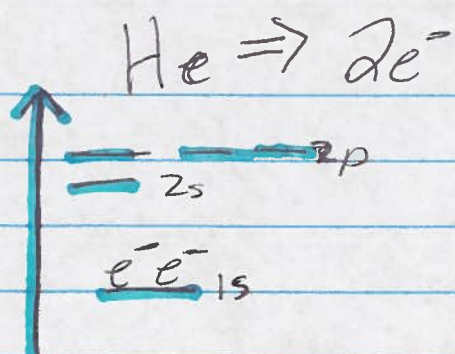 He ⇒ 2e⁻
2p
2s
e⁻ e⁻ 1s